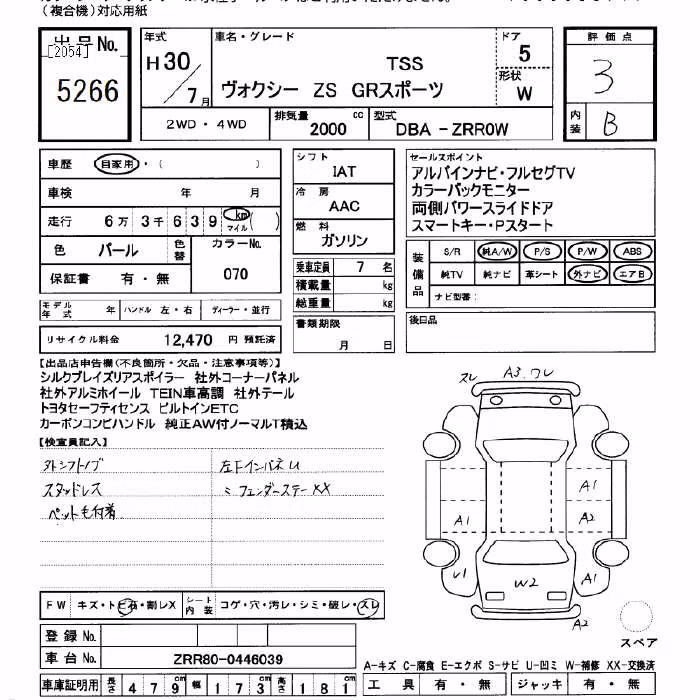 (複合機)対応用紙
出品No.
[2054]
5266
年式
H30/7月
車名・グレード
TSS
ヴォクシー ZS GRスポーツ
ドア
5
形状
W
評価点
3
内装
B
2WD・4WD
排気量
2000 cc
型式
DBA-ZRR0W
車歴 自家用・( )
車検 年 月
走行 6万3千639 km マイル( )
色 パール 色替 カラーNo.
保証書 有・無 070
シフト
IAT
冷房
AAC
燃料
ガソリン
乗車定員 7 名
積載量 kg
総重量 kg
書類期限
月 日
セールスポイント
アルパインナビ・フルセグTV
カラーバックモニター
両側パワースライドドア
スマートキー・Pスタート
装備品
S/R 純A/W P/S P/W ABS
純TV 純ナビ 革シート 外ナビ エアB
ナビ型番:
後日品
モデル年式 年 ハンドル 左・右 ディーラー・並行
リサイクル料金 12,470 円 預託済
【出品店申告欄(不良箇所・欠品・注意事項等)】
シルクブレイズリアスポイラー 社外コーナーパネル
社外アルミホイール TEIN車高調 社外テール
トヨタセーフティセンス ビルトインETC
カーボンコンビハンドル 純正AW付ノーマルT積込
【検査員記入】
外シフトノブ
スタッドレス
ペット毛付着
左Fインパネ U
〃 フェンダーステー XX
スレ A3.ワレ
A1
A1 A2
U1 W2 A1
A2
スペア
FW キズ・トビ石・割レX シート内装 コゲ・穴・汚レ・シミ・破レ・スレ
登録No.
車台No. ZRR80-0446039
車庫証明用 長さ 479cm 幅 173cm 高さ 181cm
A-キズ C-腐食 E-エクボ S-サビ U-凹ミ W-補修 XX-交換済
工具 有・無 ジャッキ 有・無